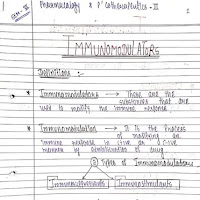 Pharmacology & P'cotherapeutics - II
IMMUNOMODULATORS
Definitions :-
* Immunomodulators → These are the
substances that are
used to modify the immune response.
* Immunomodulation → It is the Process
of modifying an
immune response in +ive or -ive
manner by administration of drug
Types of Immunomodulators
Immunosuppressants Immunostimulants